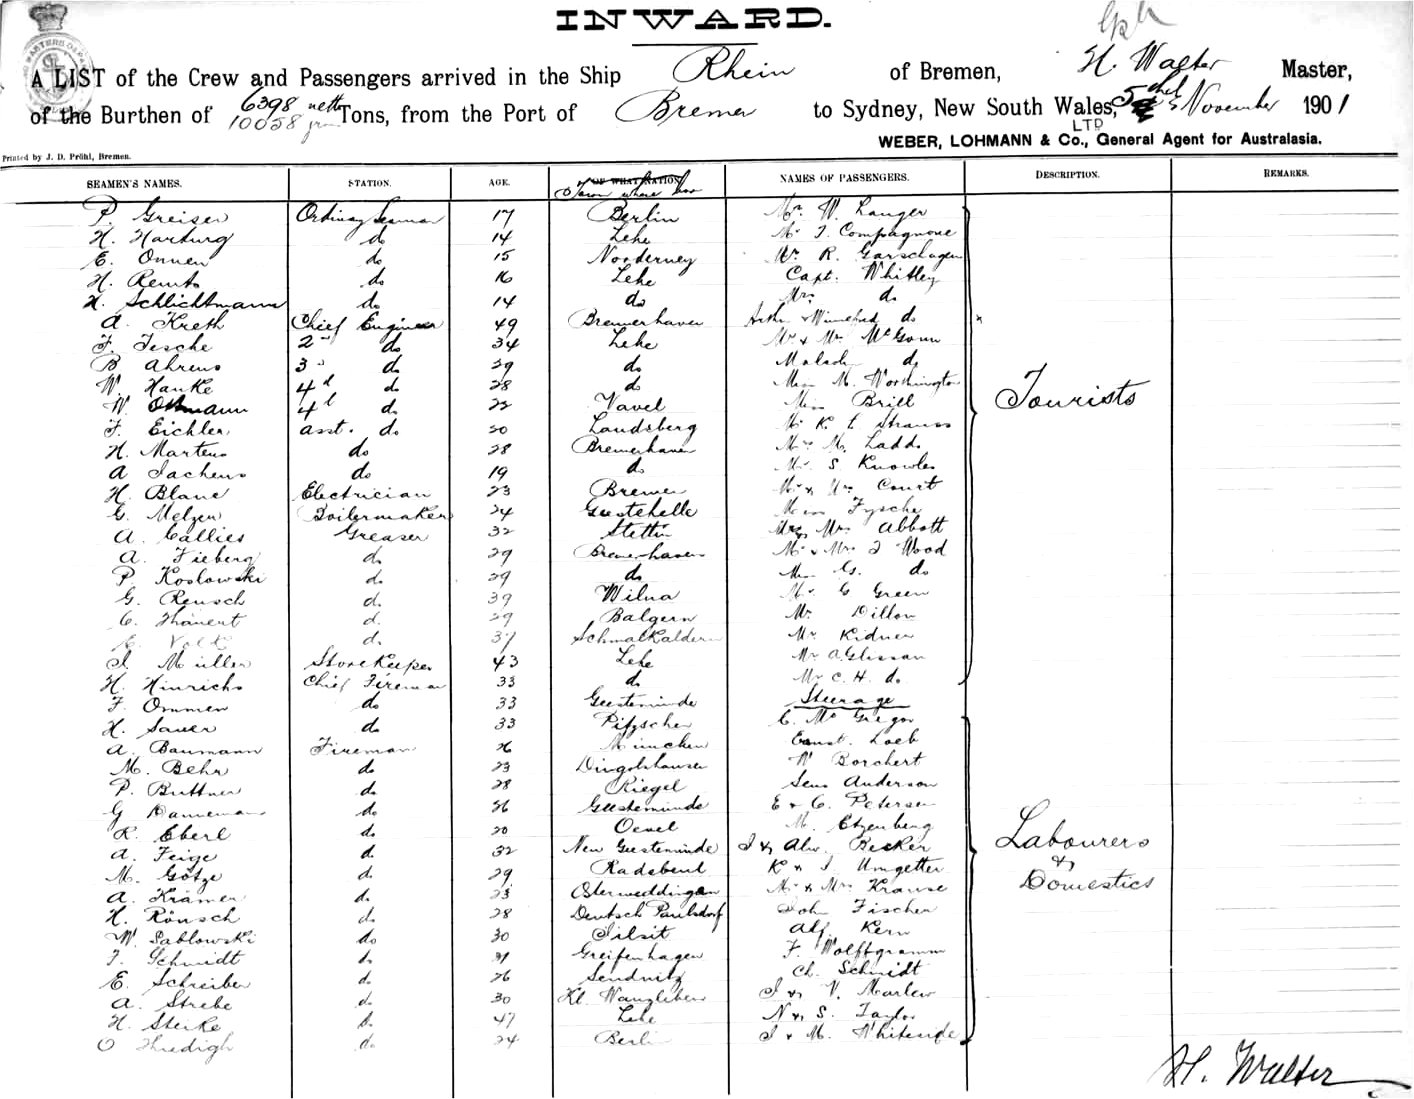 INWARD.
A LIST of the Crew and Passengers arrived in the Ship Rhein of Bremen, H. Walter Master,
of the Burthen of 6398 nett Tons, from the Port of Bremen to Sydney, New South Wales, 5 November 1901
10058
LTD
WEBER, LOHMANN & Co., General Agent for Australasia.
Printed by J. D. Pröhl, Bremen.
SEAMEN'S NAMES. STATION. AGE. OF WHAT NATION NAMES OF PASSENGERS. DESCRIPTION. REMARKS.
Town where born
P. Greiser Ordinary Seaman 17 Berlin Mr. W. Langer
H. Harburg do 14 Lehe Mr. J. Compagnoni
E. Onnen do 15 Norderney Mr R. Garschagen
H. do 16 Lehe Capt. Whitley
H. Schlichtmann do 14 do Mrs do
A. Kreth Chief Engineer 49 Bremerhaven & Winnefred do
F. Jesche 2nd do 34 Lehe Mr & Mrs McGowan
B. Ahrens 3 do 29 do do
W. Hanke 4th do 28 do Miss M. Worthington
W. Ottmann 4th do 22 Varel Miss Brill
Tourists
F. Eichler asst. do 20 Landsberg Mr K. E. Strauss
H. Martens do 28 Bremerhaven M. Ladd
A Sachens do 19 do Mr. S. Knowles
H. Blane Electrician 23 Bremen Mr & Mrs Court
G. Melzen Boilermaker 24 Geestehelle Miss Fysche
A. Callies Greaser 32 Stettin Mr & Mrs Abbott
A. Fieberg do 29 Bremerhaven Mr & Mrs J Wood
P. Koslowski do 29 do Miss G. do
G. Reusch do 39 Wilna Mr G Green
C. Thänert do 29 Balgern Mr Dillon
Volk do 37 Schmalkalden Mr Kidner
J. Müller Storekeeper 43 Lehe Mr A Glissan
H. Hinrichs Chief Fireman 33 do Mr C. H. do
F. Ommen do 33 Geestemünde Steerage
H. Sauer do 33 Pitzschen C. McGregor
A. Baumann Fireman 26 München Ernst. Loeb
M. Behr do 23 Dingolshausen W Borchert
P. Buttner do 28 Riegel Sens Anderson
G Danneman do 26 Geestemünde E & C. Petersen
R. Eberl do 20 Oevel M. Etzenberg
Labourers
&
Domestics
A. Feige do 32 New Geestemünde J & Alw. Becker
M. Götze do 29 Radebeul K & J Umgetter
A. Krämer do 23 Osterweddingen Mr & Mrs Krause
H. Rönsch do 28 Deutsch Paulsdorf Joh Fischer
W. Sablowski do 30 Tilsit Alf. Kern
J. Schmidt do 31 Greifenhagen F. Wolffgramm
E. Schreiber do 26 Sendnitz Ch. Schmidt
A. Strebe do 30 Kl. Wanzleben J & V. Marlew
H. Sterke do 47 Lehe N & S. Taylor
O Thredigh do 24 Berlin J & M. Whiteside
H. Walter